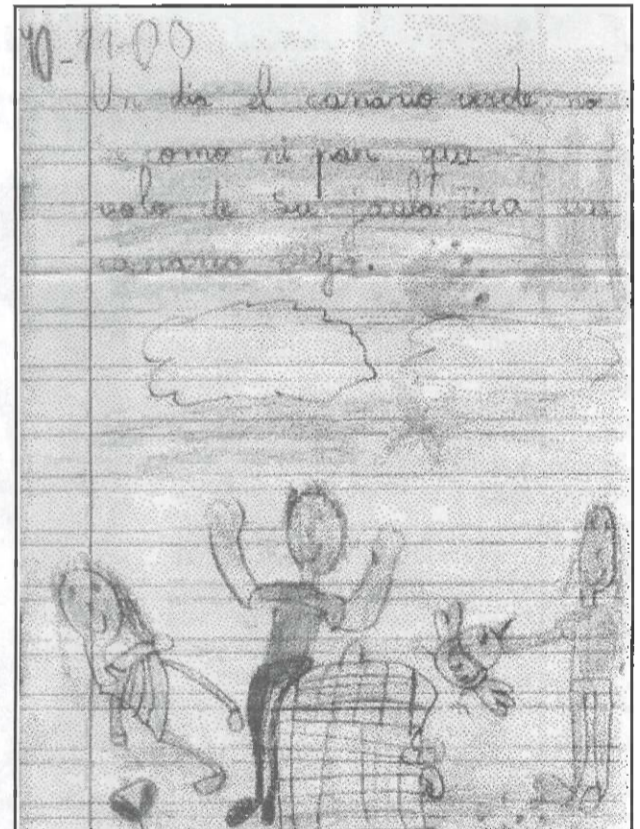 10-11-00
Un dia el canario verde no
se como ni por que
volo de su jaula era un
canario